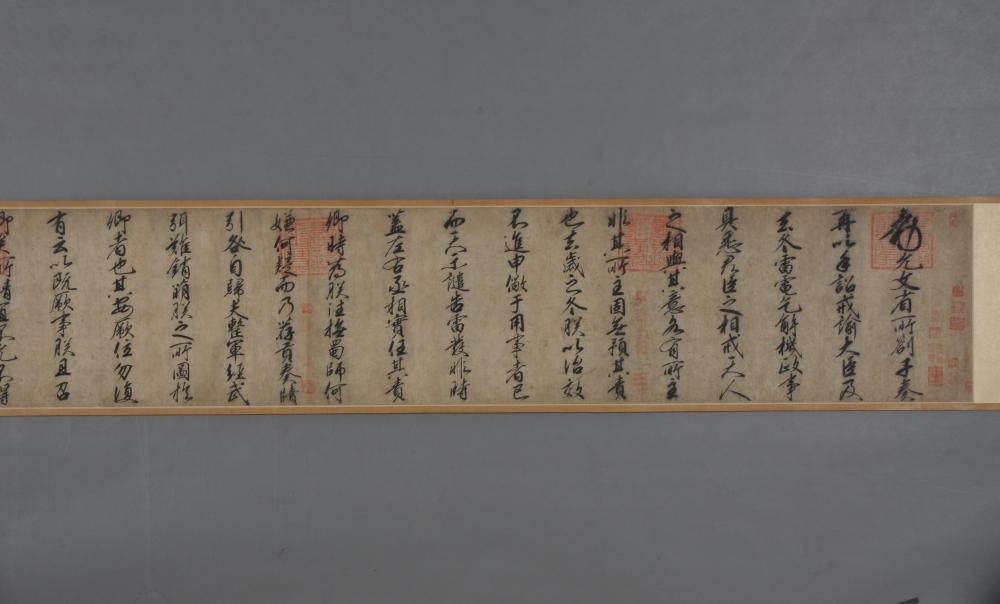 允文省所劄子奏
再以手詔戒諭大臣及
去冬雷電乞解機政事
具悉君臣之相戒天人
之相與其意各有所主
非其所主固無預其責
也去歲之冬朕以治效
不進申儆于用事者已
而天示譴告雷發非時
蓋左右丞相實任其責
卿時為朕往撫蜀師何
嫌何疑而乃荐貢奏牘
引咎自歸夫整軍經武
弭難銷萌朕之所圖惟
卿者也其安厥位勿復
有云以既厥事朕且召